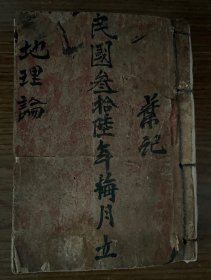 葉記
民國叁拾陸年梅月立
地理論